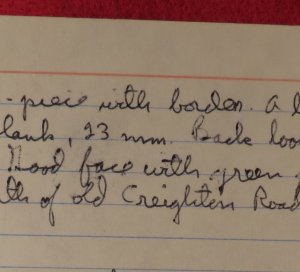 -piece with border. A l
lank, 23 mm. Back loo
Good face with green
th of old Creighton Road